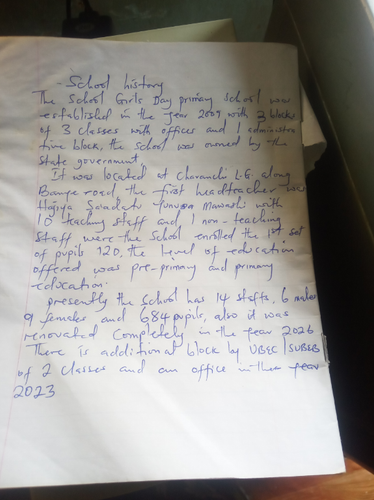 - School history
The School Girls Day primary School was
established in the year 2009 with 3 blocks
of 3 classes with offices and 1 administra
tive block, the School was owned by the
state government.
It was located at Charanchi L.G. along
road the first headteacher was
Hajiya Saadatu with
10 teaching staff and 1 non-teaching
staff were the School enrolled the 1st set
of pupils 120, the level of education
offered was pre-primary and primary
education.
presently the school has 14 staffs, 6 males
9 females and 684 pupils, also it was
renovated completely in the year 2026
There is additional block by UBEC/SUBEB
of 2 classes and an office in the year
2023